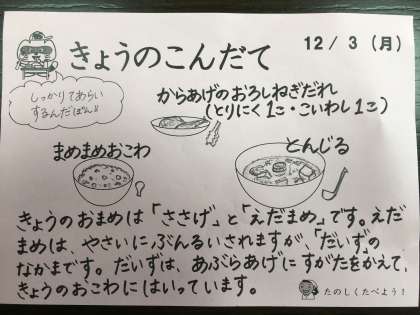 きょうのこんだて
12/3(月)
しっかりてあらい
するんだぽん!!
からあげのおろしねぎだれ
(とりにく1こ・こいわし1こ)
まめまめおこわ
とんじる
きょうのおまめは「ささげ」と「えだまめ」です。えだ
まめは、やさいにぶんるいされますが、「だいず」の
なかまです。だいずは、あぶらあげにすがたをかえて、
きょうのおこわにはいっています。
たのしくたべよう!